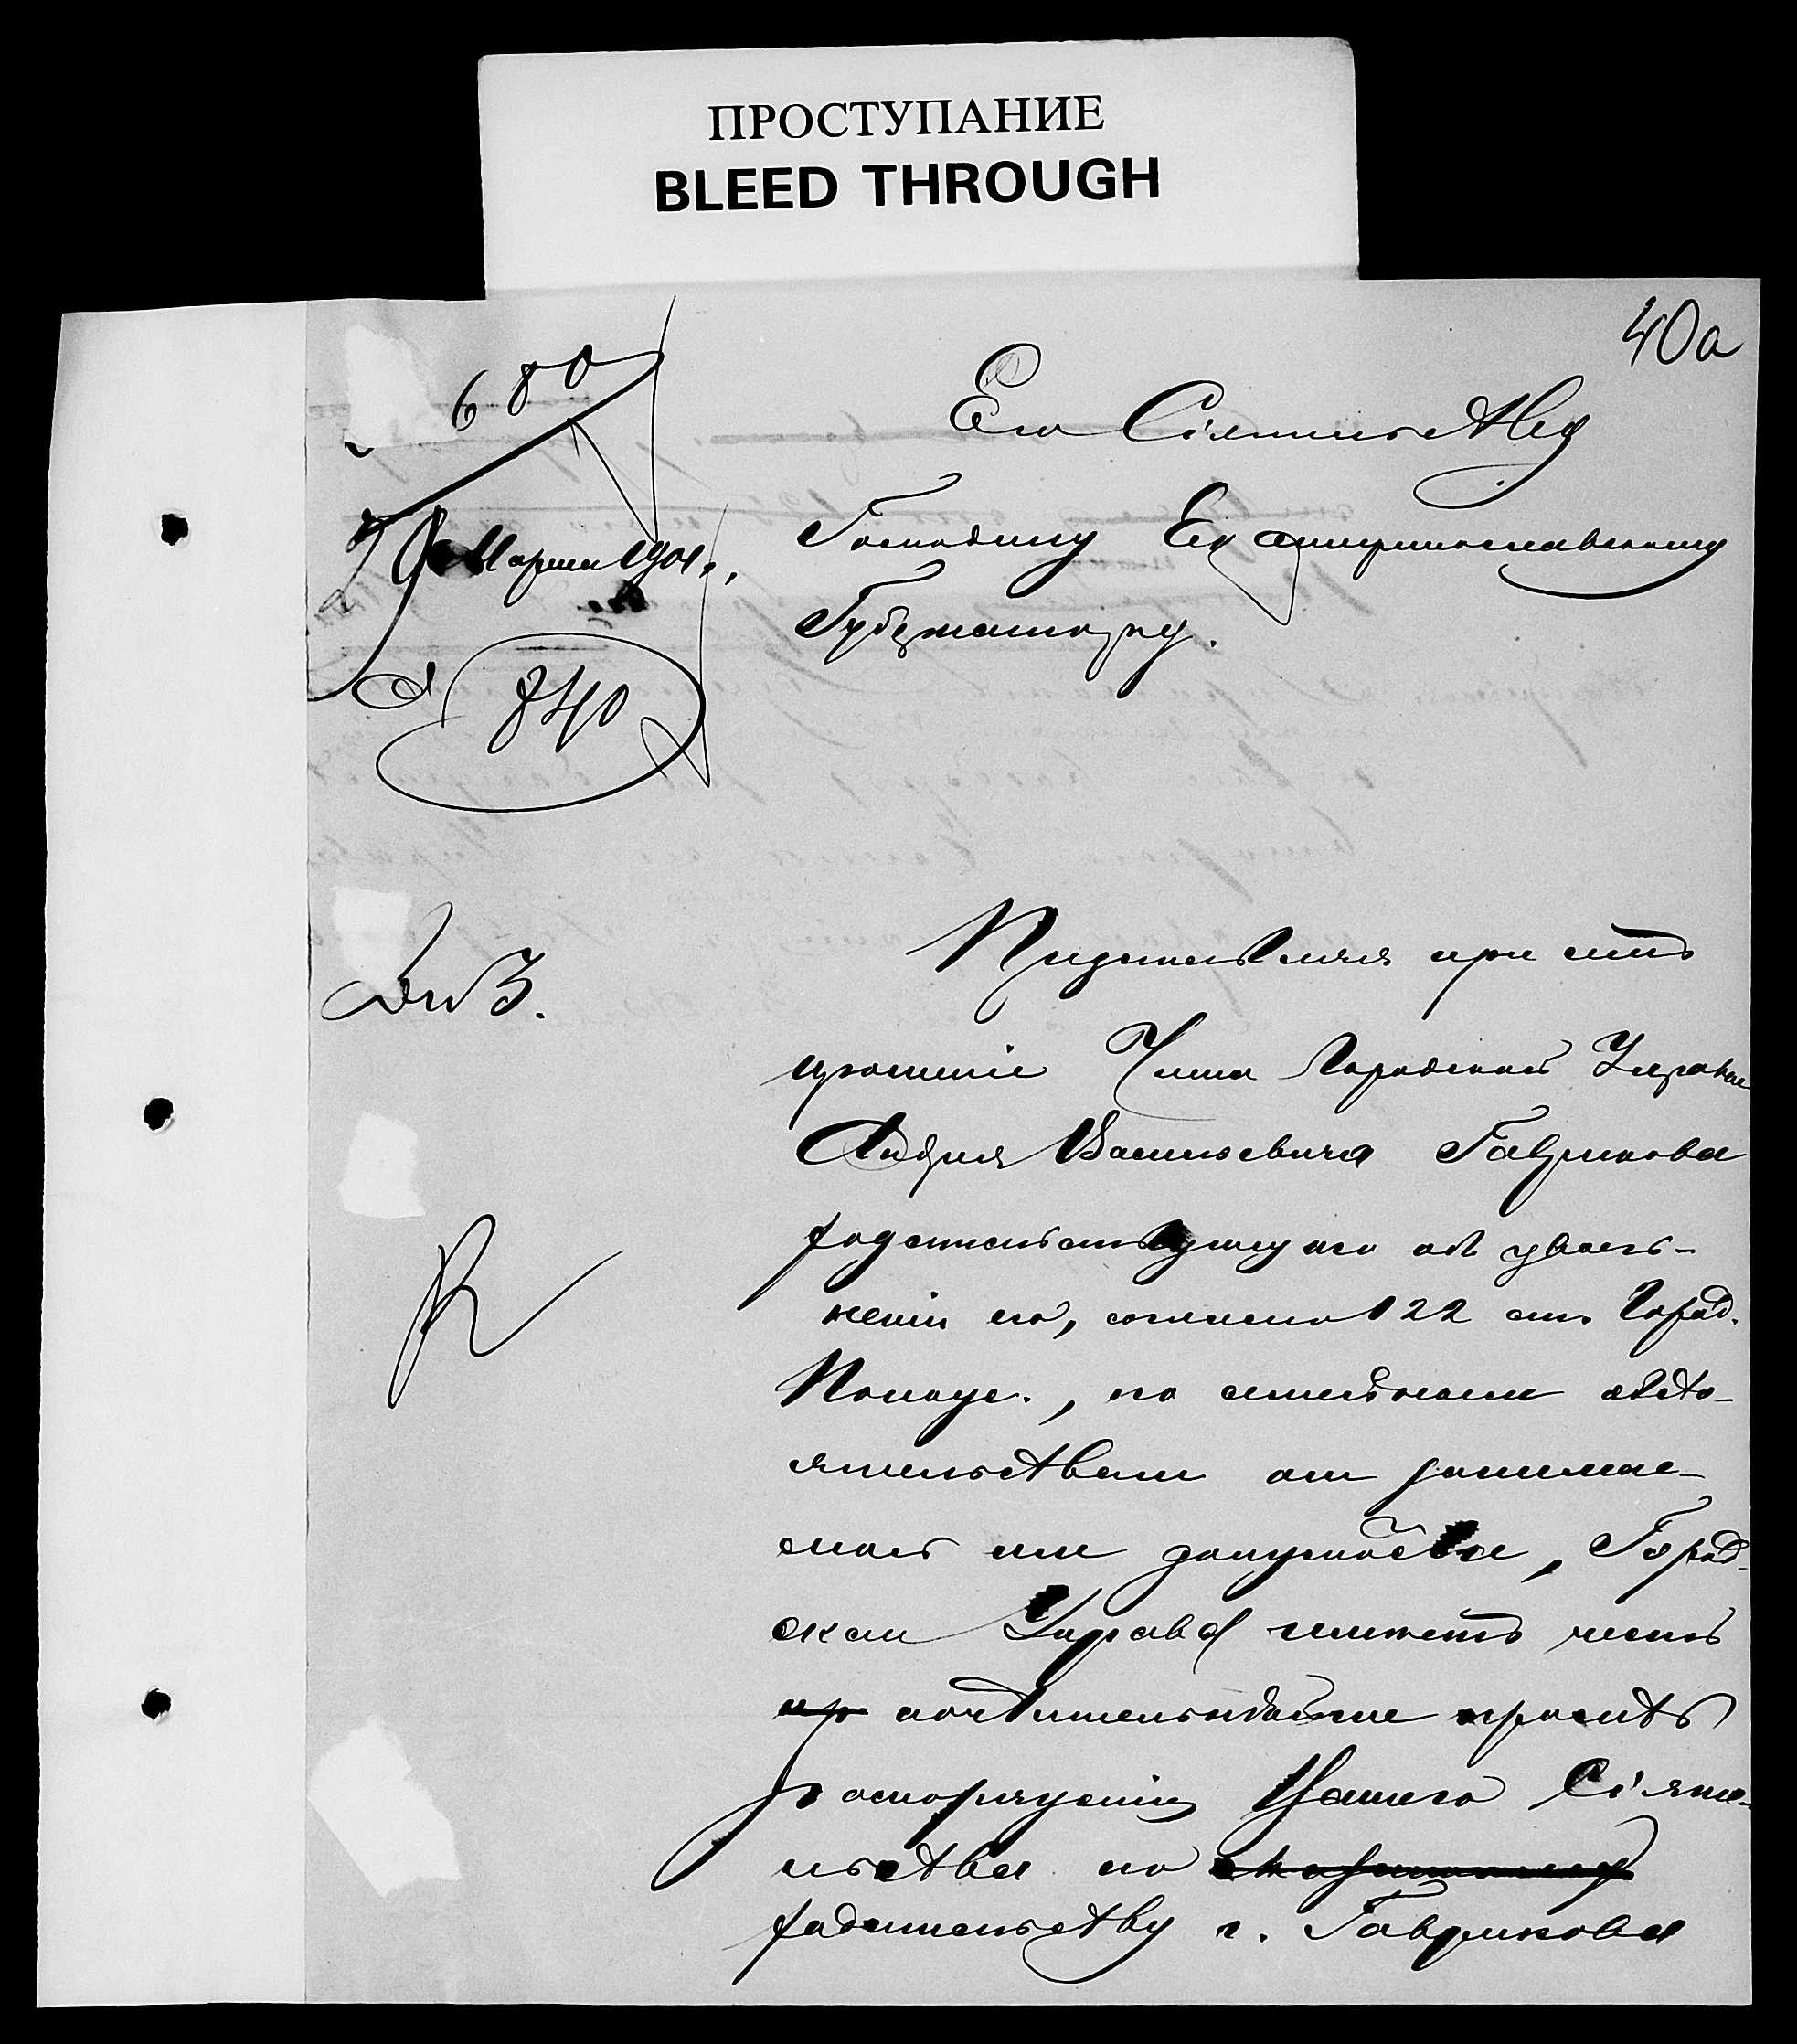 ПРОСТУПАНИЕ
BLEED THROUGH
40а
680
Его Сіятельству
Марта 1901 г.,
Господину Екатеринославскому
Губернатору.
840
Представляя при семъ
прошеніе Члена Городской Управы
Андрея Васильевича Гаврикова
ходатайствующаго объ уволь-
неніи его, согласно 122 ст. Город.
Полож., по семейнымъ обсто-
ятельствамъ отъ занимае-
мой им должности, Город-
ская Управа имѣетъ честь
почтительнѣйше просить
распоряженія Вашего Сіяте-
льства по
ходатайству г. Гаврикова